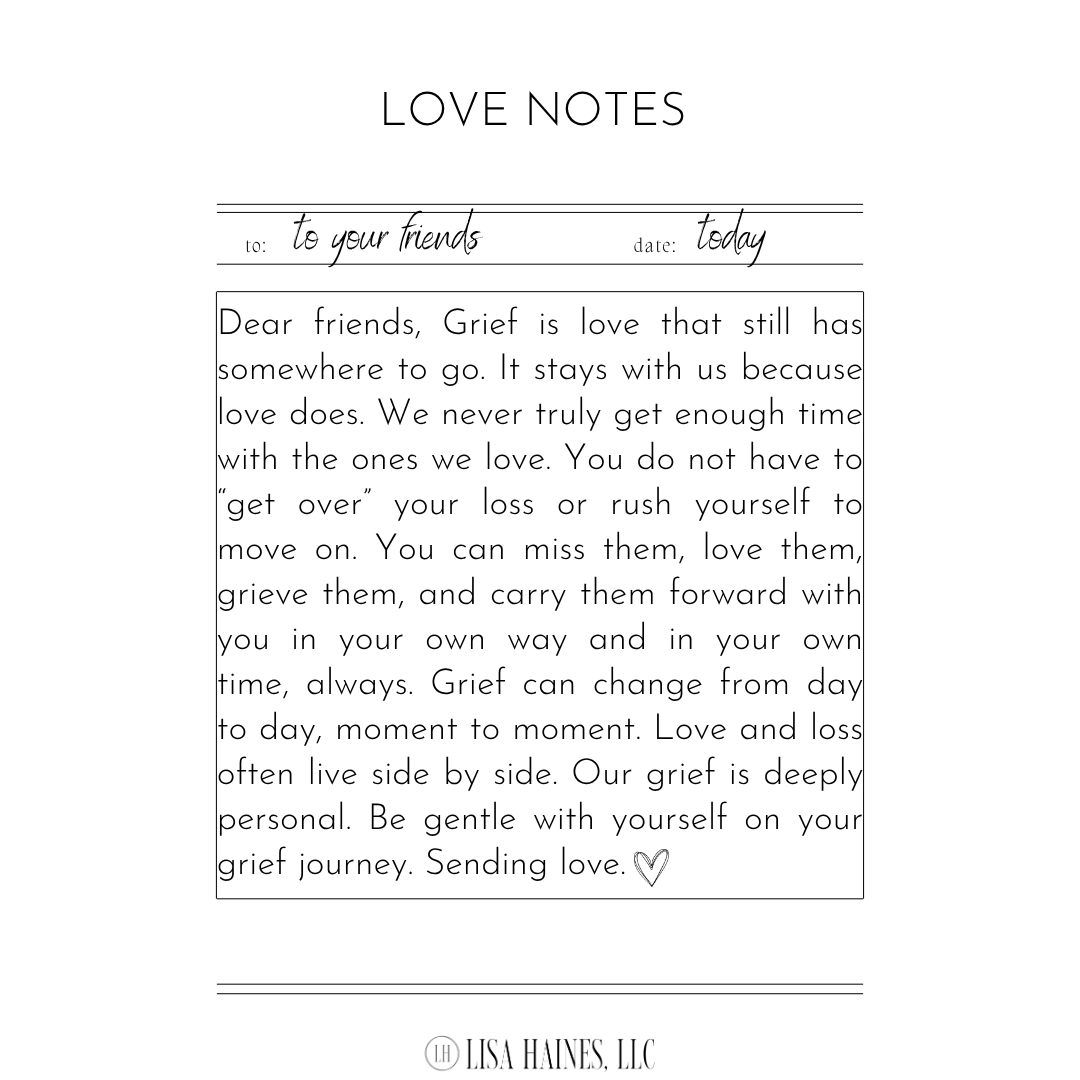 LOVE NOTES
to: to your friends date: today
Dear friends, Grief is love that still has
somewhere to go. It stays with us because
love does. We never truly get enough time
with the ones we love. You do not have to
“get over” your loss or rush yourself to
move on. You can miss them, love them,
grieve them, and carry them forward with
you in your own way and in your own
time, always. Grief can change from day
to day, moment to moment. Love and loss
often live side by side. Our grief is deeply
personal. Be gentle with yourself on your
grief journey. Sending love.
LH LISA HAINES, LLC